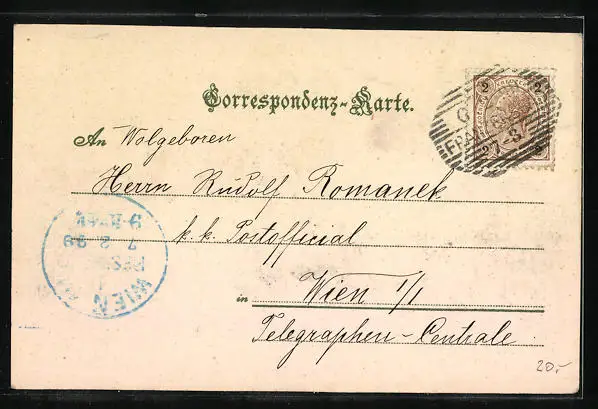 Correspondenz-Karte.
2 2
An Wolgeboren
Herrn Rudolf Romanek
k. k. Postofficial
in Wien 1/1
Telegraphen-Centrale
WIEN
7. 2. 99
20.-